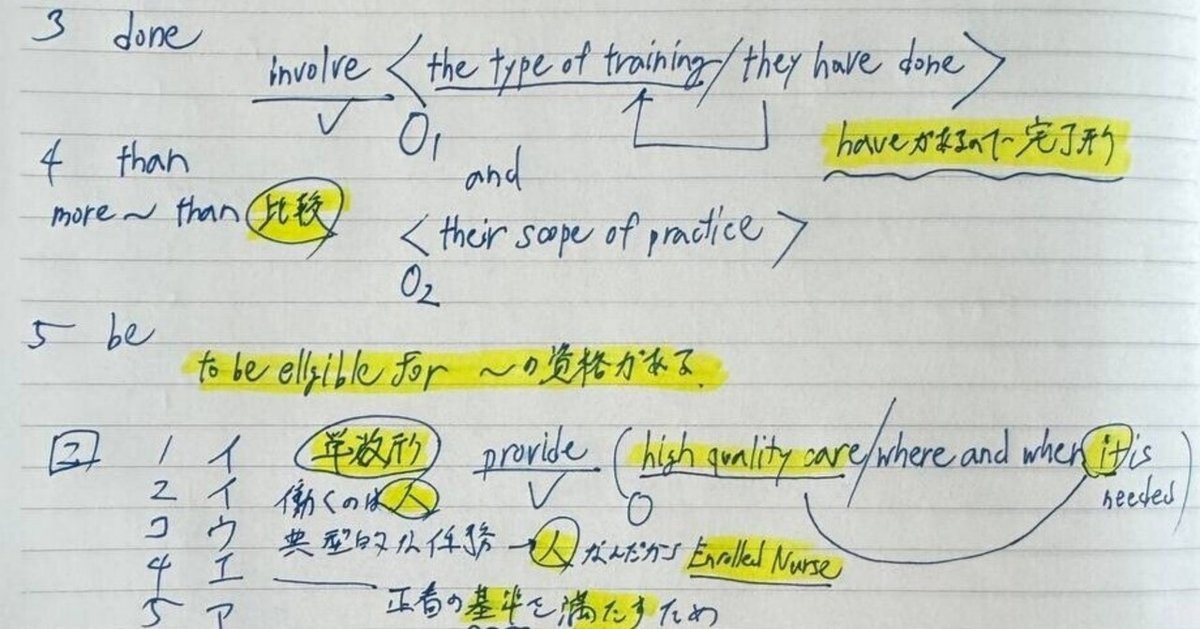 3 done
involve <the type of training/they have done>
V O1
haveがあるので完了形
4 than
and
more~ than 比較
<their scope of practice>
O2
5 be
to be ellgible for ~の資格がある
2 1 イ 単数形 provide (high quality care/where and when it is needed)
V O
2 イ 働くのは人
3 ウ 典型的な任務→人なんだから Enrolled Nurse
4 エ
5 ア の基準を満たすため